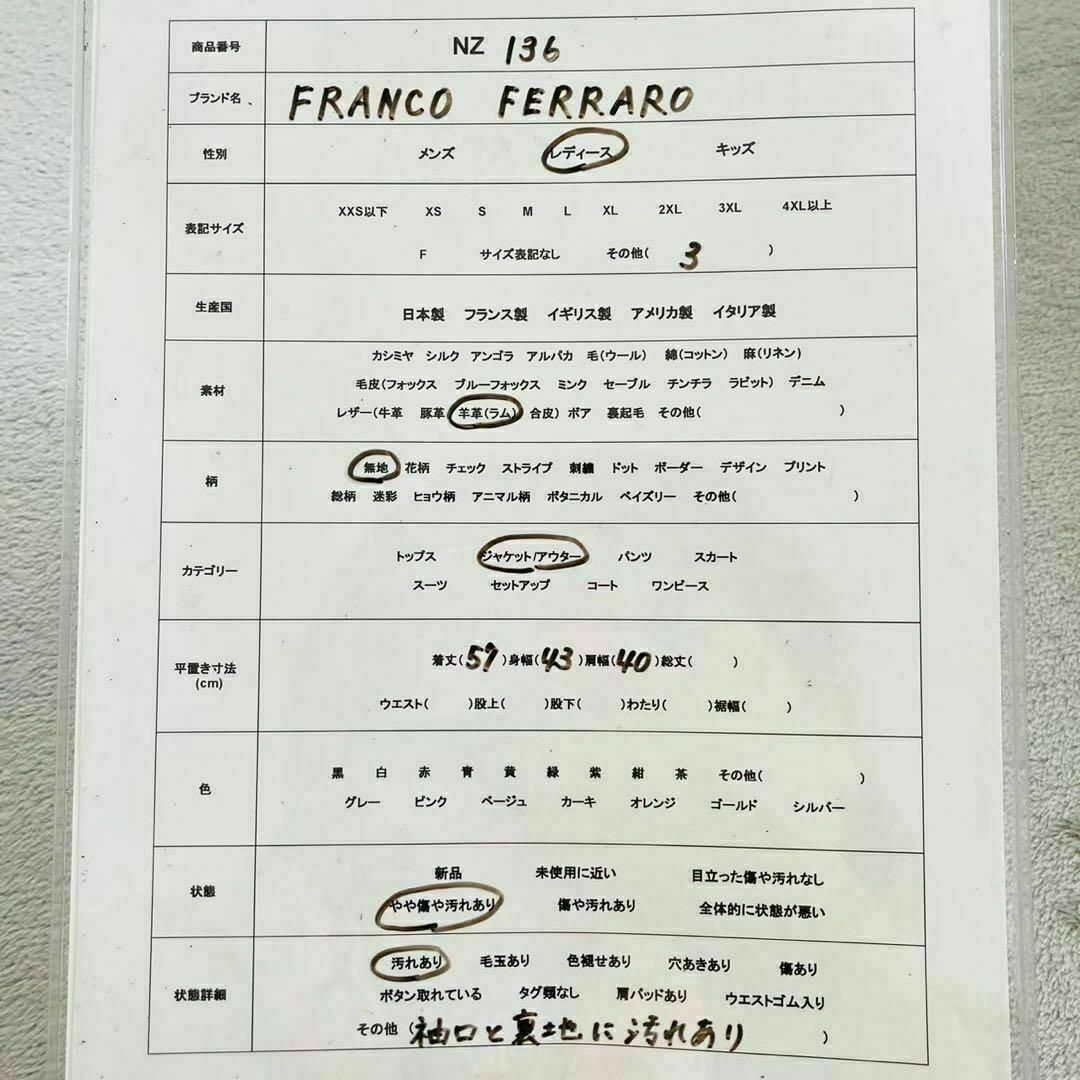 商品番号 NZ 136
ブランド名、 FRANCO FERRARO
性別 メンズ レディース キッズ
XXS以下 XS S M L XL 2XL 3XL 4XL以上
表記サイズ
F サイズ表記なし その他( 3 )
生産国 日本製 フランス製 イギリス製 アメリカ製 イタリア製
カシミヤ シルク アンゴラ アルパカ 毛(ウール) 綿(コットン) 麻(リネン)
毛皮(フォックス ブルーフォックス ミンク セーブル チンチラ ラビット) デニム
素材
レザー(牛革 豚革 羊革(ラム) 合皮) ボア 裏起毛 その他( )
無地 花柄 チェック ストライプ 刺繍 ドット ボーダー デザイン プリント
柄
総柄 迷彩 ヒョウ柄 アニマル柄 ボタニカル ペイズリー その他( )
トップス ジャケット/アウター パンツ スカート
カテゴリー
スーツ セットアップ コート ワンピース
着丈(57)身幅(43)肩幅(40)総丈( )
平置き寸法
(cm)
ウエスト( )股上( )股下( )わたり( )裾幅( )
黒 白 赤 青 黄 緑 紫 紺 茶 その他( )
色
グレー ピンク ベージュ カーキ オレンジ ゴールド シルバー
新品 未使用に近い 目立った傷や汚れなし
状態
やや傷や汚れあり 傷や汚れあり 全体的に状態が悪い
汚れあり 毛玉あり 色褪せあり 穴あきあり 傷あり
状態詳細 ボタン取れている タグ類なし 肩パッドあり ウエストゴム入り
その他 (袖口と裏地に汚れあり )